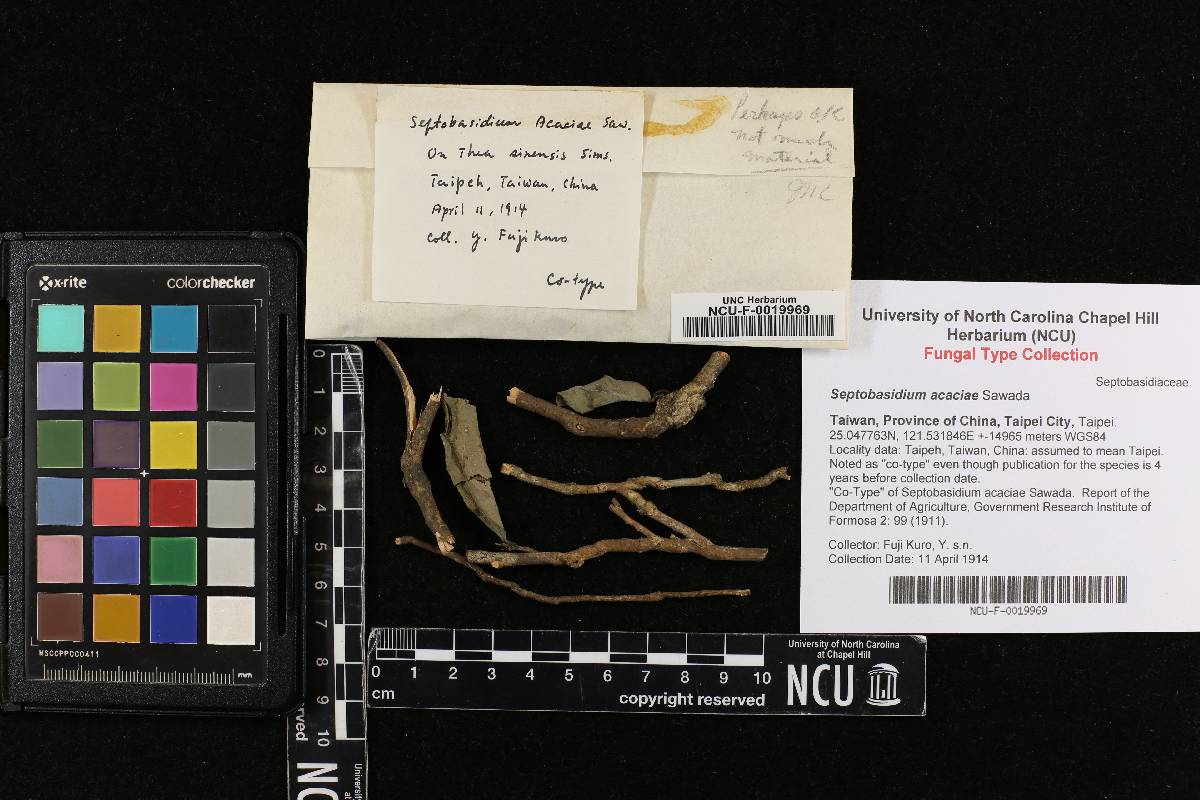 Septobasidium Acaciae Saw.
On Thea sinensis Sims.
Taipeh, Taiwan, China
April 11, 1914
Coll. Y. Fuji Kuro
Co-type
Perhaps O.K
Not much
material
JNC
UNC Herbarium
NCU-F-0019969
University of North Carolina Chapel Hill
Herbarium (NCU)
Fungal Type Collection
Septobasidiaceae
Septobasidium acaciae Sawada
Taiwan, Province of China, Taipei City, Taipei.
25.047763N, 121.531846E +-14965 meters WGS84
Locality data: Taipeh, Taiwan, China: assumed to mean Taipei.
Noted as "co-type" even though publication for the species is 4
years before collection date.
"Co-Type" of Septobasidium acaciae Sawada. Report of the
Department of Agriculture, Government Research Institute of
Formosa 2: 99 (1911).
Collector: Fuji Kuro, Y. s.n.
Collection Date: 11 April 1914
NCU-F-0019969
x-rite colorchecker
MSCCPPC00411
mm
0 1 2 3 4 5 6 7 8 9 10
University of North Carolina
at Chapel Hill
0 1 2 3 4 5 6 7 8 9 10
cm
copyright reserved
NCU